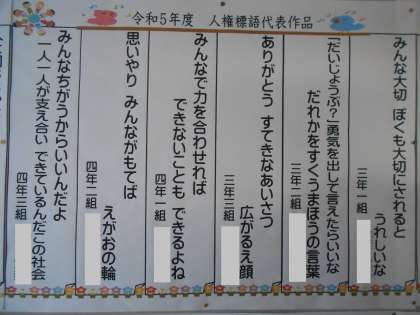 令和5年度 人権標語代表作品
みんな大切 ぼくも大切にされると
うれしいな
三年一組
「だいじょうぶ？」勇気を出して言えたらいいな
だれかをすくうまほうの言葉
三年二組
ありがとう すてきなあいさつ
広がるえ顔
三年三組
みんなで力を合わせれば
できないことも できるよね
四年一組
思いやり みんながもてば
えがおの輪
四年二組
みんなちがうからいいんだよ
一人一人が支え合い できているんだこの社会
四年三組